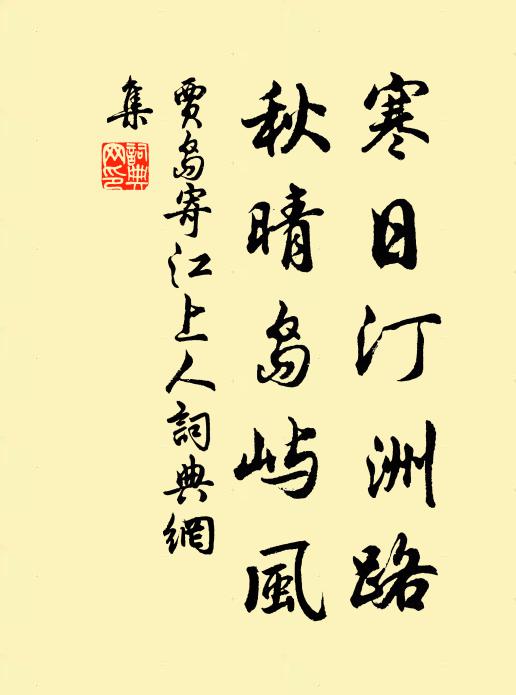 寒日汀洲路
秋晴島嶼風
賈島寄江上人詞典網
集
詞典
网印